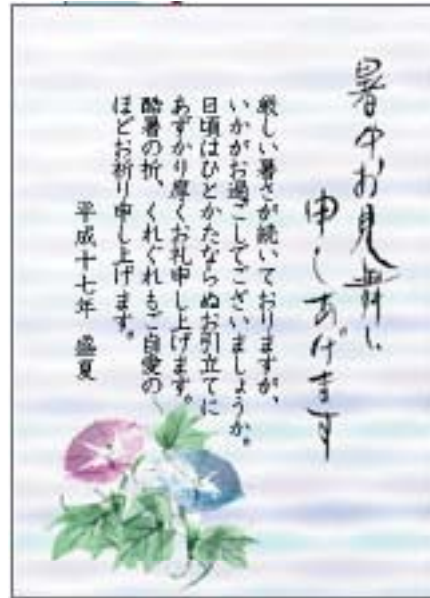 暑中お見舞い
申しあげます
厳しい暑さが続いておりますが、
いかがお過ごしでございましょうか。
日頃はひとかたならぬお引立てに
あずかり厚くお礼申し上げます。
酷暑の折、くれぐれもご自愛の
ほどお祈り申し上げます。
平成十七年 盛夏